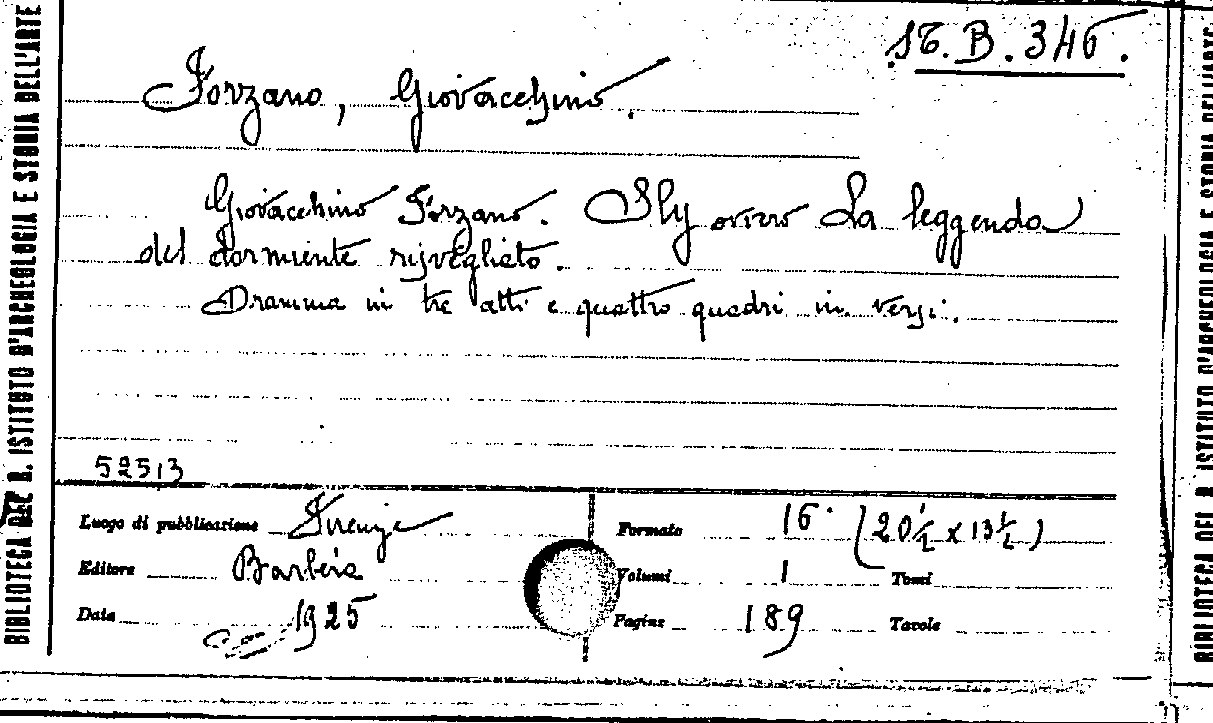 BIBLIOTECA DEL R. ISTITUTO D'ARCHEOLOGIA E STORIA DELL'ARTE
ST. B. 346.
Forzano, Giovacchino.
Giovacchino Forzano. Sly ovvero La leggenda
del dormiente risvegliato.
Dramma in tre atti e quattro quadri in versi.
52513
Luogo di pubblicazione Firenze
Editore Barbèra
Data 1925
Formato 16° (20 1/2 x 13 1/2)
Volumi 1 Tomi
Pagine 189 Tavole
BIBLIOTECA DEL R. ISTITUTO D'ARCHEOLOGIA E STORIA DELL'ARTE